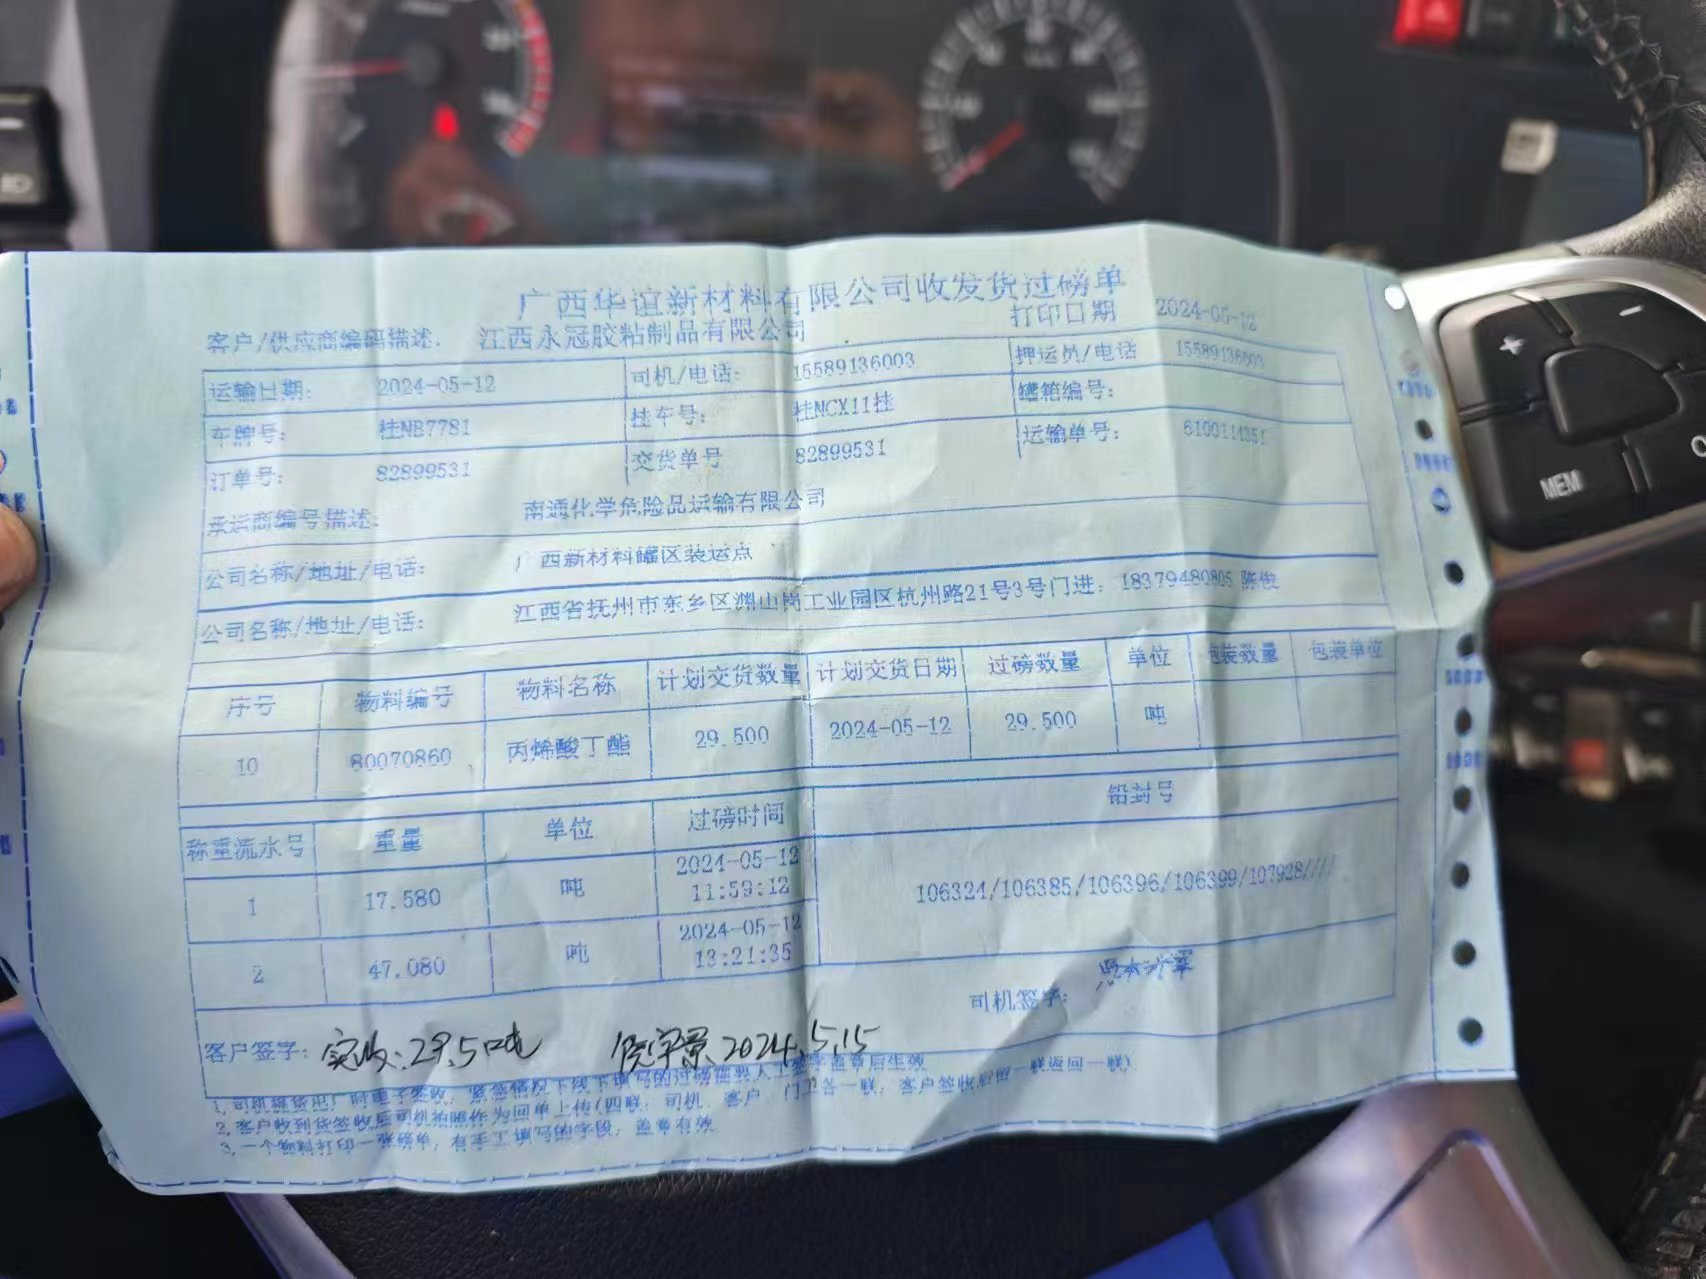 广西华谊新材料有限公司收发货过磅单
客户/供应商编码描述: 江西永冠胶粘制品有限公司 打印日期 2024-05-12
运输日期: 2024-05-12 司机/电话: 15589136003 押运员/电话 15589136003
车牌号: 桂NB7781 挂车号: 桂NCX11挂 罐箱编号:
订单号: 82899531 交货单号 82899531 运输单号: 6100114351
承运商编号描述: 南通化学危险品运输有限公司
公司名称/地址/电话: 广西新材料罐区装运点
公司名称/地址/电话: 江西省抚州市东乡区渊山岗工业园区杭州路21号3号门进: 18379480805 陈俊
序号 物料编号 物料名称 计划交货数量 计划交货日期 过磅数量 单位 包装数量 包装单位
10 80070860 丙烯酸丁酯 29.500 2024-05-12 29.500 吨
称重流水号 重量 单位 过磅时间 铅封号
1 17.580 吨 2024-05-12 11:59:12 106324/106385/106396/106399/107928////
2 47.080 吨 2024-05-12 13:21:35
司机签字:
客户签字: 实收:29.5吨 2024.5.15
1,司机提货出厂时电子签收, 紧急情况下线下填写的过磅需要人工签字盖章后生效
2,客户收到货签收后司机拍照作为回单上传(四联: 司机 客户 门卫各一联; 客户签收后留一联返回一联)
3,一个物料打印一张磅单, 有手工填写的字段; 盖章有效
MEM